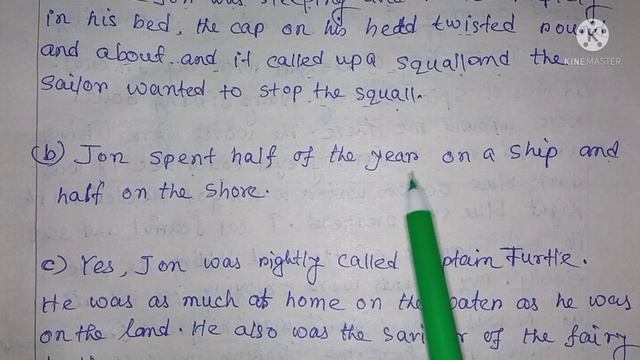 Jon was sleeping and
in his bed, the cap on his hedd twisted
and about and it called upa squalland the
Sailor wanted to stop the squall.
(b) Jon spent half of the year on a ship and
half on the shore.
c) Yes, Jon was rightly called Captain Turtle.
He was as much at home on the water as he was
on the land. He also was the of the fairy
KINEMASTER